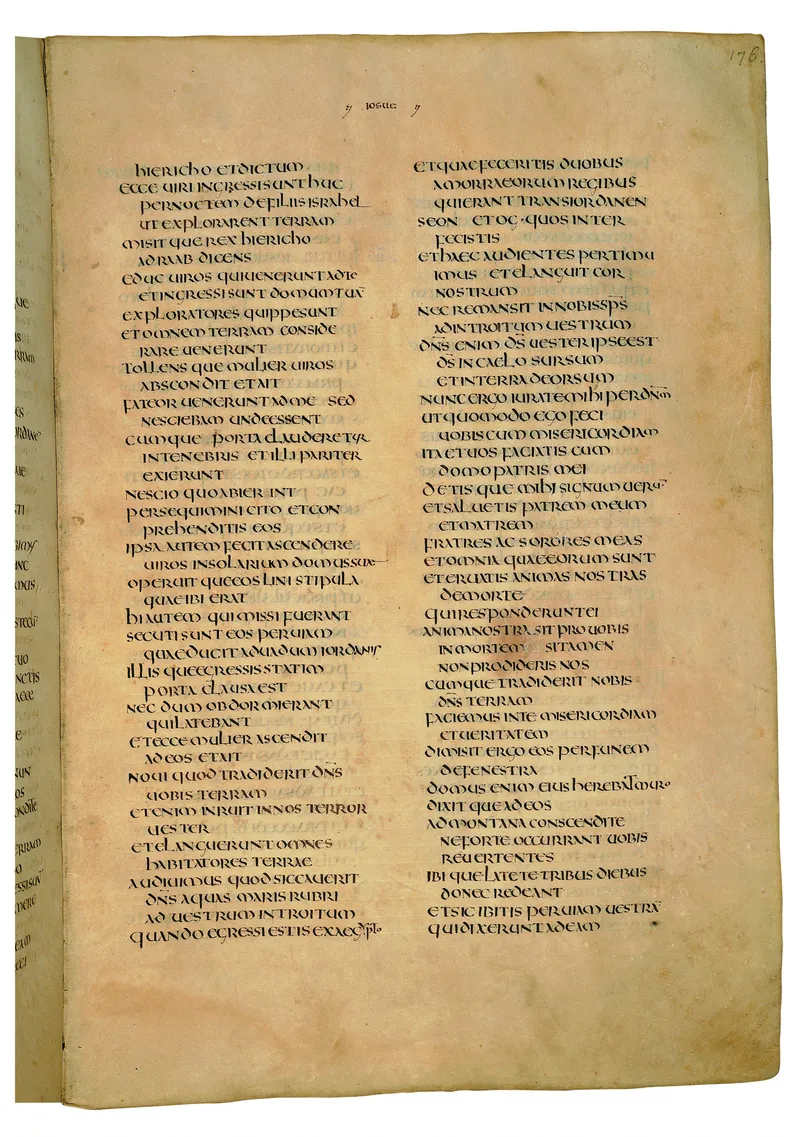 176
IOSUE
HIERICHO ETDICTUM
ECCE UIRI INGRESSI SUNT HUC
PER NOCTEM DE FILIIS ISRAHEL
UT EXPLORARENT TERRAM
MISIT QUE REX HIERICHO
AD RAAB DICENS
EDUC UIROS QUI UENERUNT AD TE
ET INGRESSI SUNT DOMUM TUA
EXPLORATORES QUIPPE SUNT
ET OMNEM TERRAM CONSIDE
RARE UENERUNT
TOLLENS QUE MULIER UIROS
ABSCONDIT ET AIT
FATEOR UENERUNT AD ME SED
NESCIEBAM UNDE ESSENT
CUMQUE PORTA CLAUDERETUR
IN TENEBRIS ET ILLI PARITER
EXIERUNT
NESCIO QUO ABIERINT
PERSEQUIMINI CITO ET CON
PREHENDITIS EOS
IPSA AUTEM FECIT ASCENDERE
UIROS IN SOLARIUM DOMUS SUAE
OPERUIT QUE EOS LINI STIPULA
QUAE IBI ERAT
HI AUTEM QUI MISSI FUERANT
SECUTI SUNT EOS PER UIAM
QUAE DUCIT AD UADUM IORDANIS
ILLIS QUE EGRESSIS STATIM
PORTA CLAUSA EST
NEC DUM OBDORMIERANT
QUI LATEBANT
ET ECCE MULIER ASCENDIT
AD EOS ET AIT
NOUI QUOD TRADIDERIT DNS
UOBIS TERRAM
ETENIM INRUIT IN NOS TERROR
UESTER
ET ELANGUERUNT OMNES
HABITATORES TERRAE
AUDIUIMUS QUOD SICCAUERIT
DNS AQUAS MARIS RUBRI
AD UESTRUM INTROITUM
QUANDO EGRESSI ESTIS EX AEGYPTO
ET QUAE FECERITIS DUOBUS
AMORRAEORUM REGIBUS
QUI ERANT TRANS IORDANEN
SEON ET OG · QUOS INTER
FECISTIS
ET HAEC AUDIENTES PERTIMU
IMUS ET ELANGUIT COR
NOSTRUM
NEC REMANSIT IN NOBIS SPS
AD INTROITUM UESTRUM
DNS ENIM DS UESTER IPSE EST
DS IN CAELO SURSUM
ET IN TERRA DEORSUM
NUNC ERGO IURATE MIHI PER DNM
UT QUOMODO EGO FECI
UOBISCUM MISERICORDIAM
ITA ET UOS FACIATIS CUM
DOMO PATRIS MEI
DETIS QUE MIHI SIGNUM UERUM
ET SALUETIS PATREM MEUM
ET MATREM
FRATRES AC SORORES MEAS
ET OMNIA QUAE EORUM SUNT
ET ERUATIS ANIMAS NOSTRAS
DE MORTE
QUI RESPONDERUNT EI
ANIMA NOSTRA SIT PRO UOBIS
IN MORTEM SI TAMEN
NON PRODIDERIS NOS
CUMQUE TRADIDERIT NOBIS
DNS TERRAM
FACIEMUS IN TE MISERICORDIAM
ET UERITATEM
DIMISIT ERGO EOS PER FUNEM
DE FENESTRA
DOMUS ENIM EIUS HEREBAT MURO
DIXIT QUE AD EOS
AD MONTANA CONSCENDITE
NE FORTE OCCURRANT UOBIS
REUERTENTES
IBI QUE LATETE TRIBUS DIEBUS
DONEC REDEANT
ET SIC IBITIS PER UIAM UESTRA
QUI DIXERUNT AD EAM